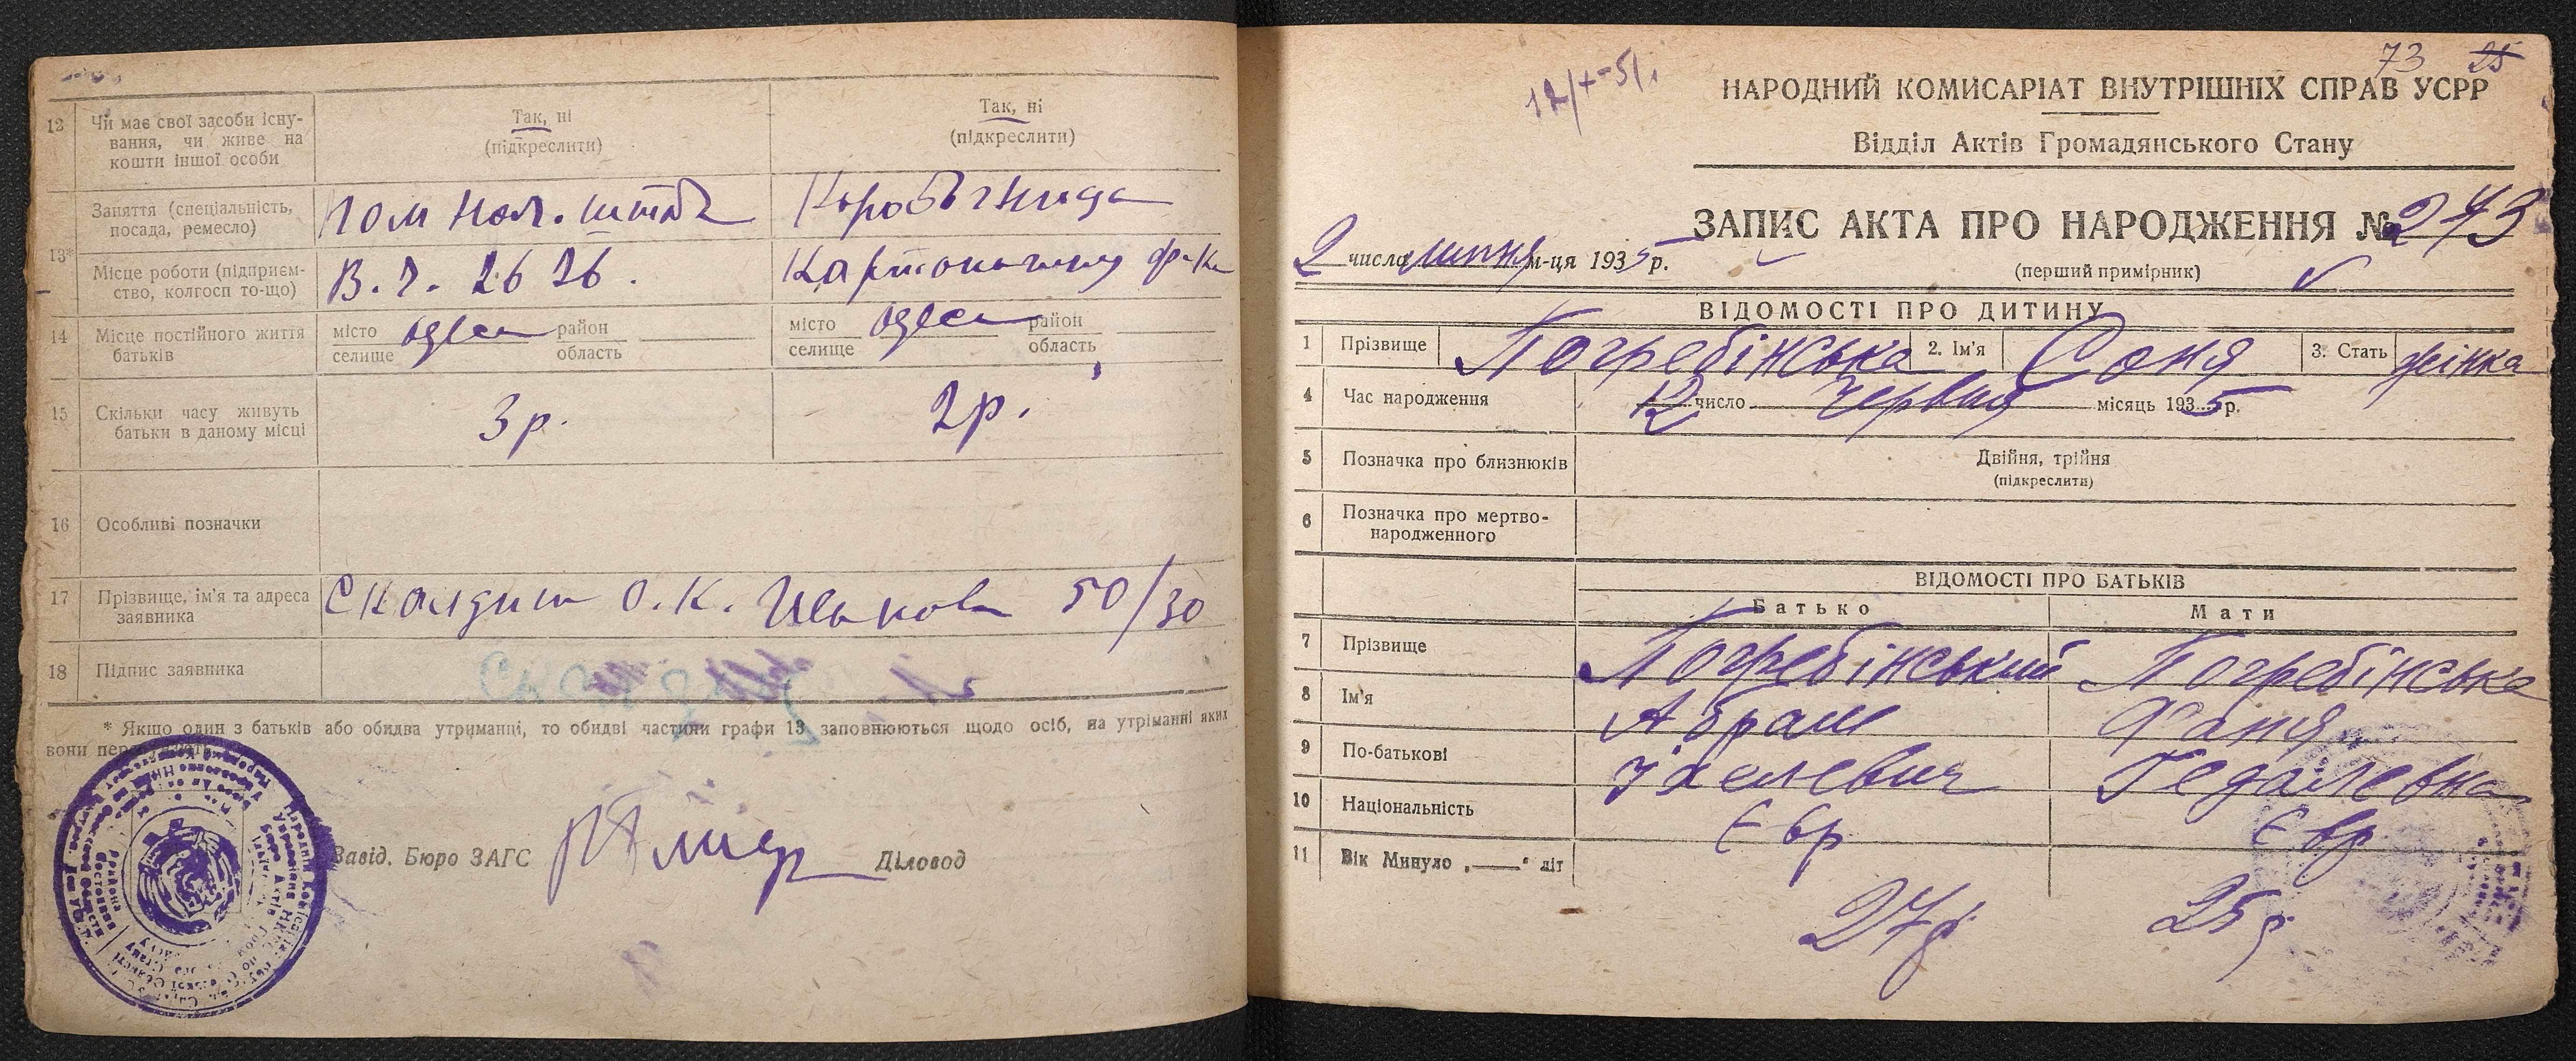 12
Чи має свої засоби існу-
вання, чи живе на
кошти іншої особи
Так, ні
(підкреслити)
Так, ні
(підкреслити)
13*
Заняття (спеціальність,
посада, ремесло)
Пом нач. штаба
Коробочница
Місце роботи (підприєм-
ство, колгосп то-що)
В. ч. 2626.
14
Місце постійного життя
батьків
місто Одеса район
селище область
місто Одеса район
селище область
15
Скільки часу живуть
батьки в даному місці
3 р.
2 р.
16
Особливі позначки
17
Прізвище, ім'я та адреса
заявника
О. К. 50/30
18
Підпис заявника
* Якщо один з батьків або обидва утриманці, то обидві частини графи 13 заповнюються щодо осіб, на утриманні яких
вони
Завід. Бюро ЗАГС
Діловод
12/X-51.
73
25
НАРОДНИЙ КОМИСАРІАТ ВНУТРІШНІХ СПРАВ УСРР
Відділ Актів Громадянського Стану
ЗАПИС АКТА ПРО НАРОДЖЕННЯ № 273
2 числа липня м-ця 1935 р.
(перший примірник)
ВІДОМОСТІ ПРО ДИТИНУ
1 Прізвище Погребінська 2. Ім'я Соня 3. Стать жінка
4 Час народження 12 число Червня місяць 1935 р.
5 Позначка про близнюків Двійня, трійня
(підкреслити)
6 Позначка про мертво-
народженного
ВІДОМОСТІ ПРО БАТЬКІВ
Батько Мати
7 Прізвище Погребінський Погребінська
8 Ім'я Абрам Фаня
9 По-батькові Гедалевна
10 Національність Євр Євр
11 Вік Минуло „——" літ
27 р. 25 р.